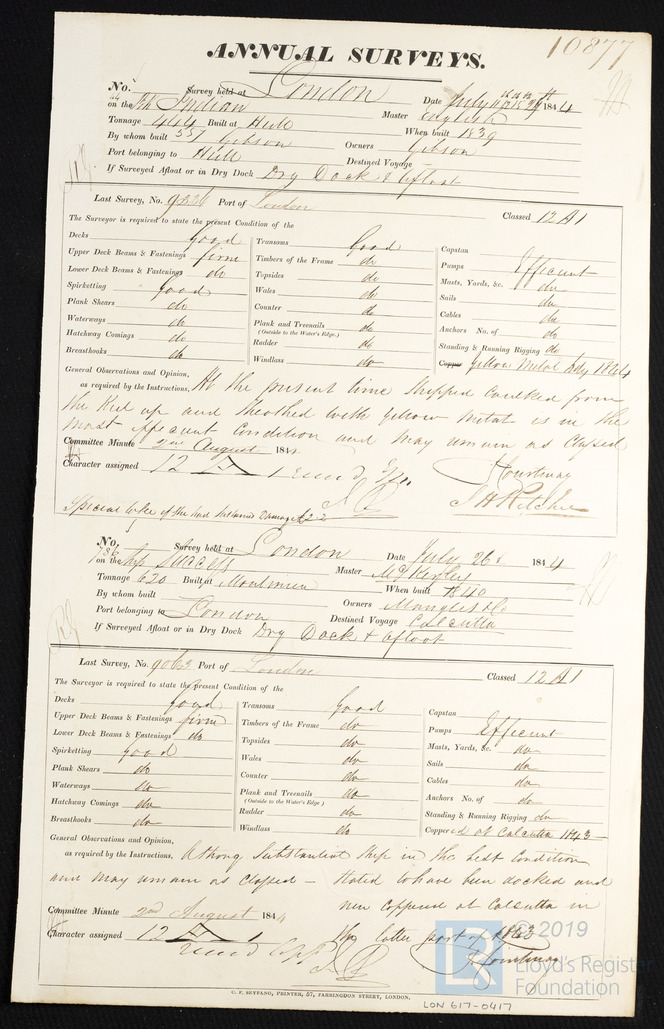 10877
ANNUAL SURVEYS.
No. Survey held at London Date July 1844
on the Bk Indian Master English
Tonnage 444 Built at Hull When built 1839
By whom built 557 Gibson Owners Gibson
Port belonging to Hull Destined Voyage
If Surveyed Afloat or in Dry Dock Dry Dock & afloat
Last Survey, No. Port of London Classed 12 A1
The Surveyor is required to state the present Condition of the
Decks good Transoms Good Capstan
Upper Deck Beams & Fastenings firm Timbers of the Frame do Pumps Efficient
Lower Deck Beams & Fastenings do Topsides do Masts, Yards, &c. do
Spirketting good Wales do Sails do
Plank Shears do Counter do Cables do
Waterways do Plank and Treenails do Anchors No. of do
(Outside to the Water's Edge.)
Hatchway Comings do Rudder do Standing & Running Rigging do
Breasthooks do Windlass do Copper Yellow Metal July 1844
General Observations and Opinion,
as required by the Instructions, At the present time stripped caulked from
the Keel up and sheathed with yellow metal is in the
most efficient condition and may remain as classed
Committee Minute 2nd August 1844
Character assigned 12 A 1 Courtenay
J H Ritchie
Special
No. Survey held at London Date July 26 1844
on the Ship Success Master
Tonnage 620 Built at Moulmein When built 1840
By whom built Owners Mangles & Co
Port belonging to London Destined Voyage Calcutta
If Surveyed Afloat or in Dry Dock Dry Dock & afloat
Last Survey, No. 9063 Port of London Classed 12 A1
The Surveyor is required to state the present Condition of the
Decks good Transoms Good Capstan
Upper Deck Beams & Fastenings firm Timbers of the Frame do Pumps Efficient
Lower Deck Beams & Fastenings do Topsides do Masts, Yards, &c. do
Spirketting good Wales do Sails do
Plank Shears do Counter do Cables do
Waterways do Plank and Treenails do Anchors No. of do
(Outside to the Water's Edge)
Hatchway Comings do Rudder do Standing & Running Rigging do
Breasthooks do Windlass do Coppered at Calcutta 1843
General Observations and Opinion,
as required by the Instructions, A strong substantial ship in the best condition
and may remain as classed - Stated to have been docked and
new coppered at Calcutta in
Committee Minute 2nd August 1844
Character assigned 12 A 1 the latter part of 1843
Courtenay
© 2019
Lloyd's Register
Foundation
C. F. SEYFANG, PRINTER, 57, FARRINGDON STREET, LONDON.
LON 617-0417